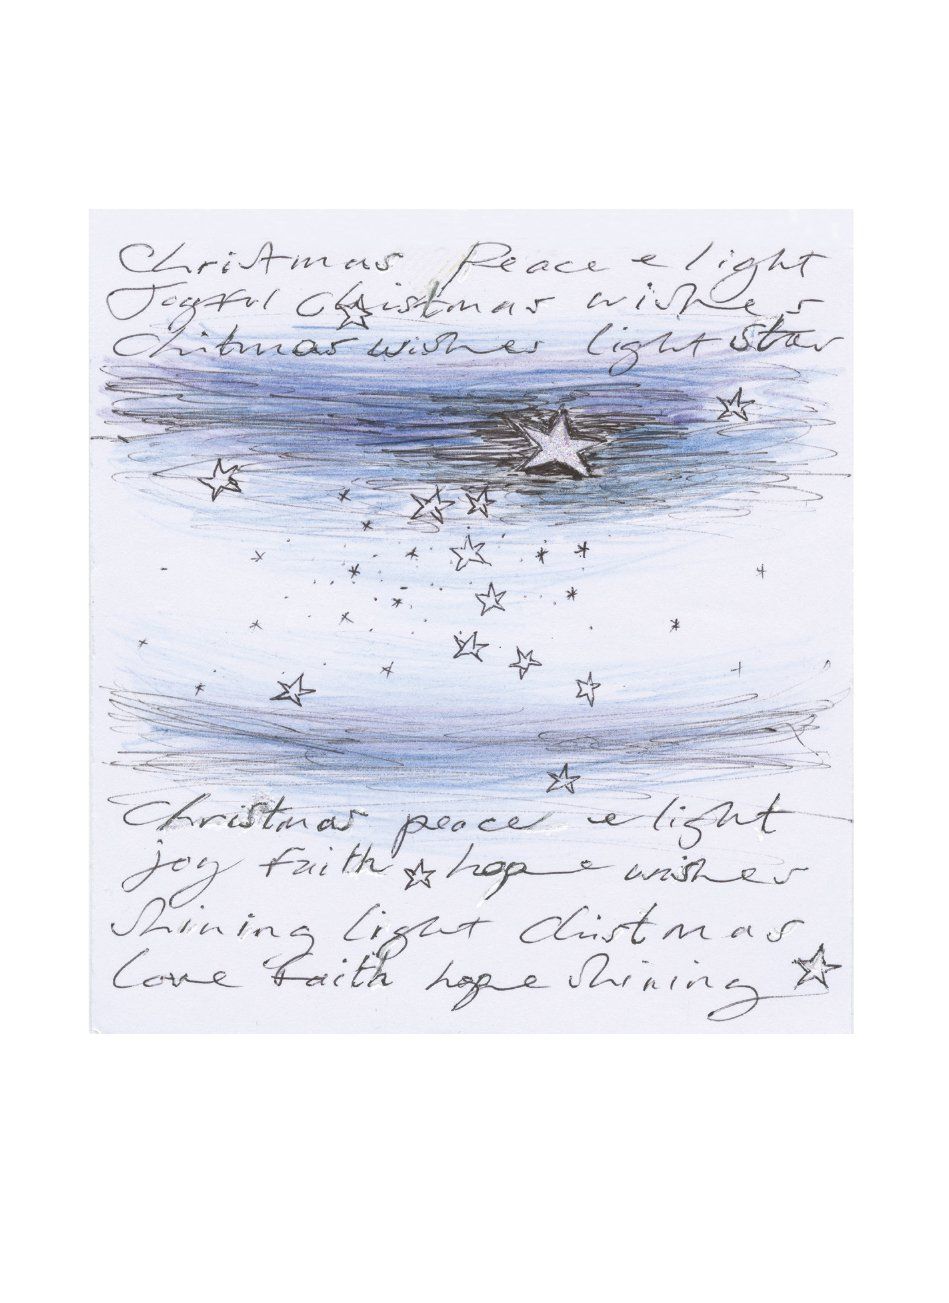 Christmas Peace e light
Joyful christmas wishes
Chitmas wishes light star
Christmas peace e light
joy faith hope wishes
Shining light Christmas
Love faith hope shining